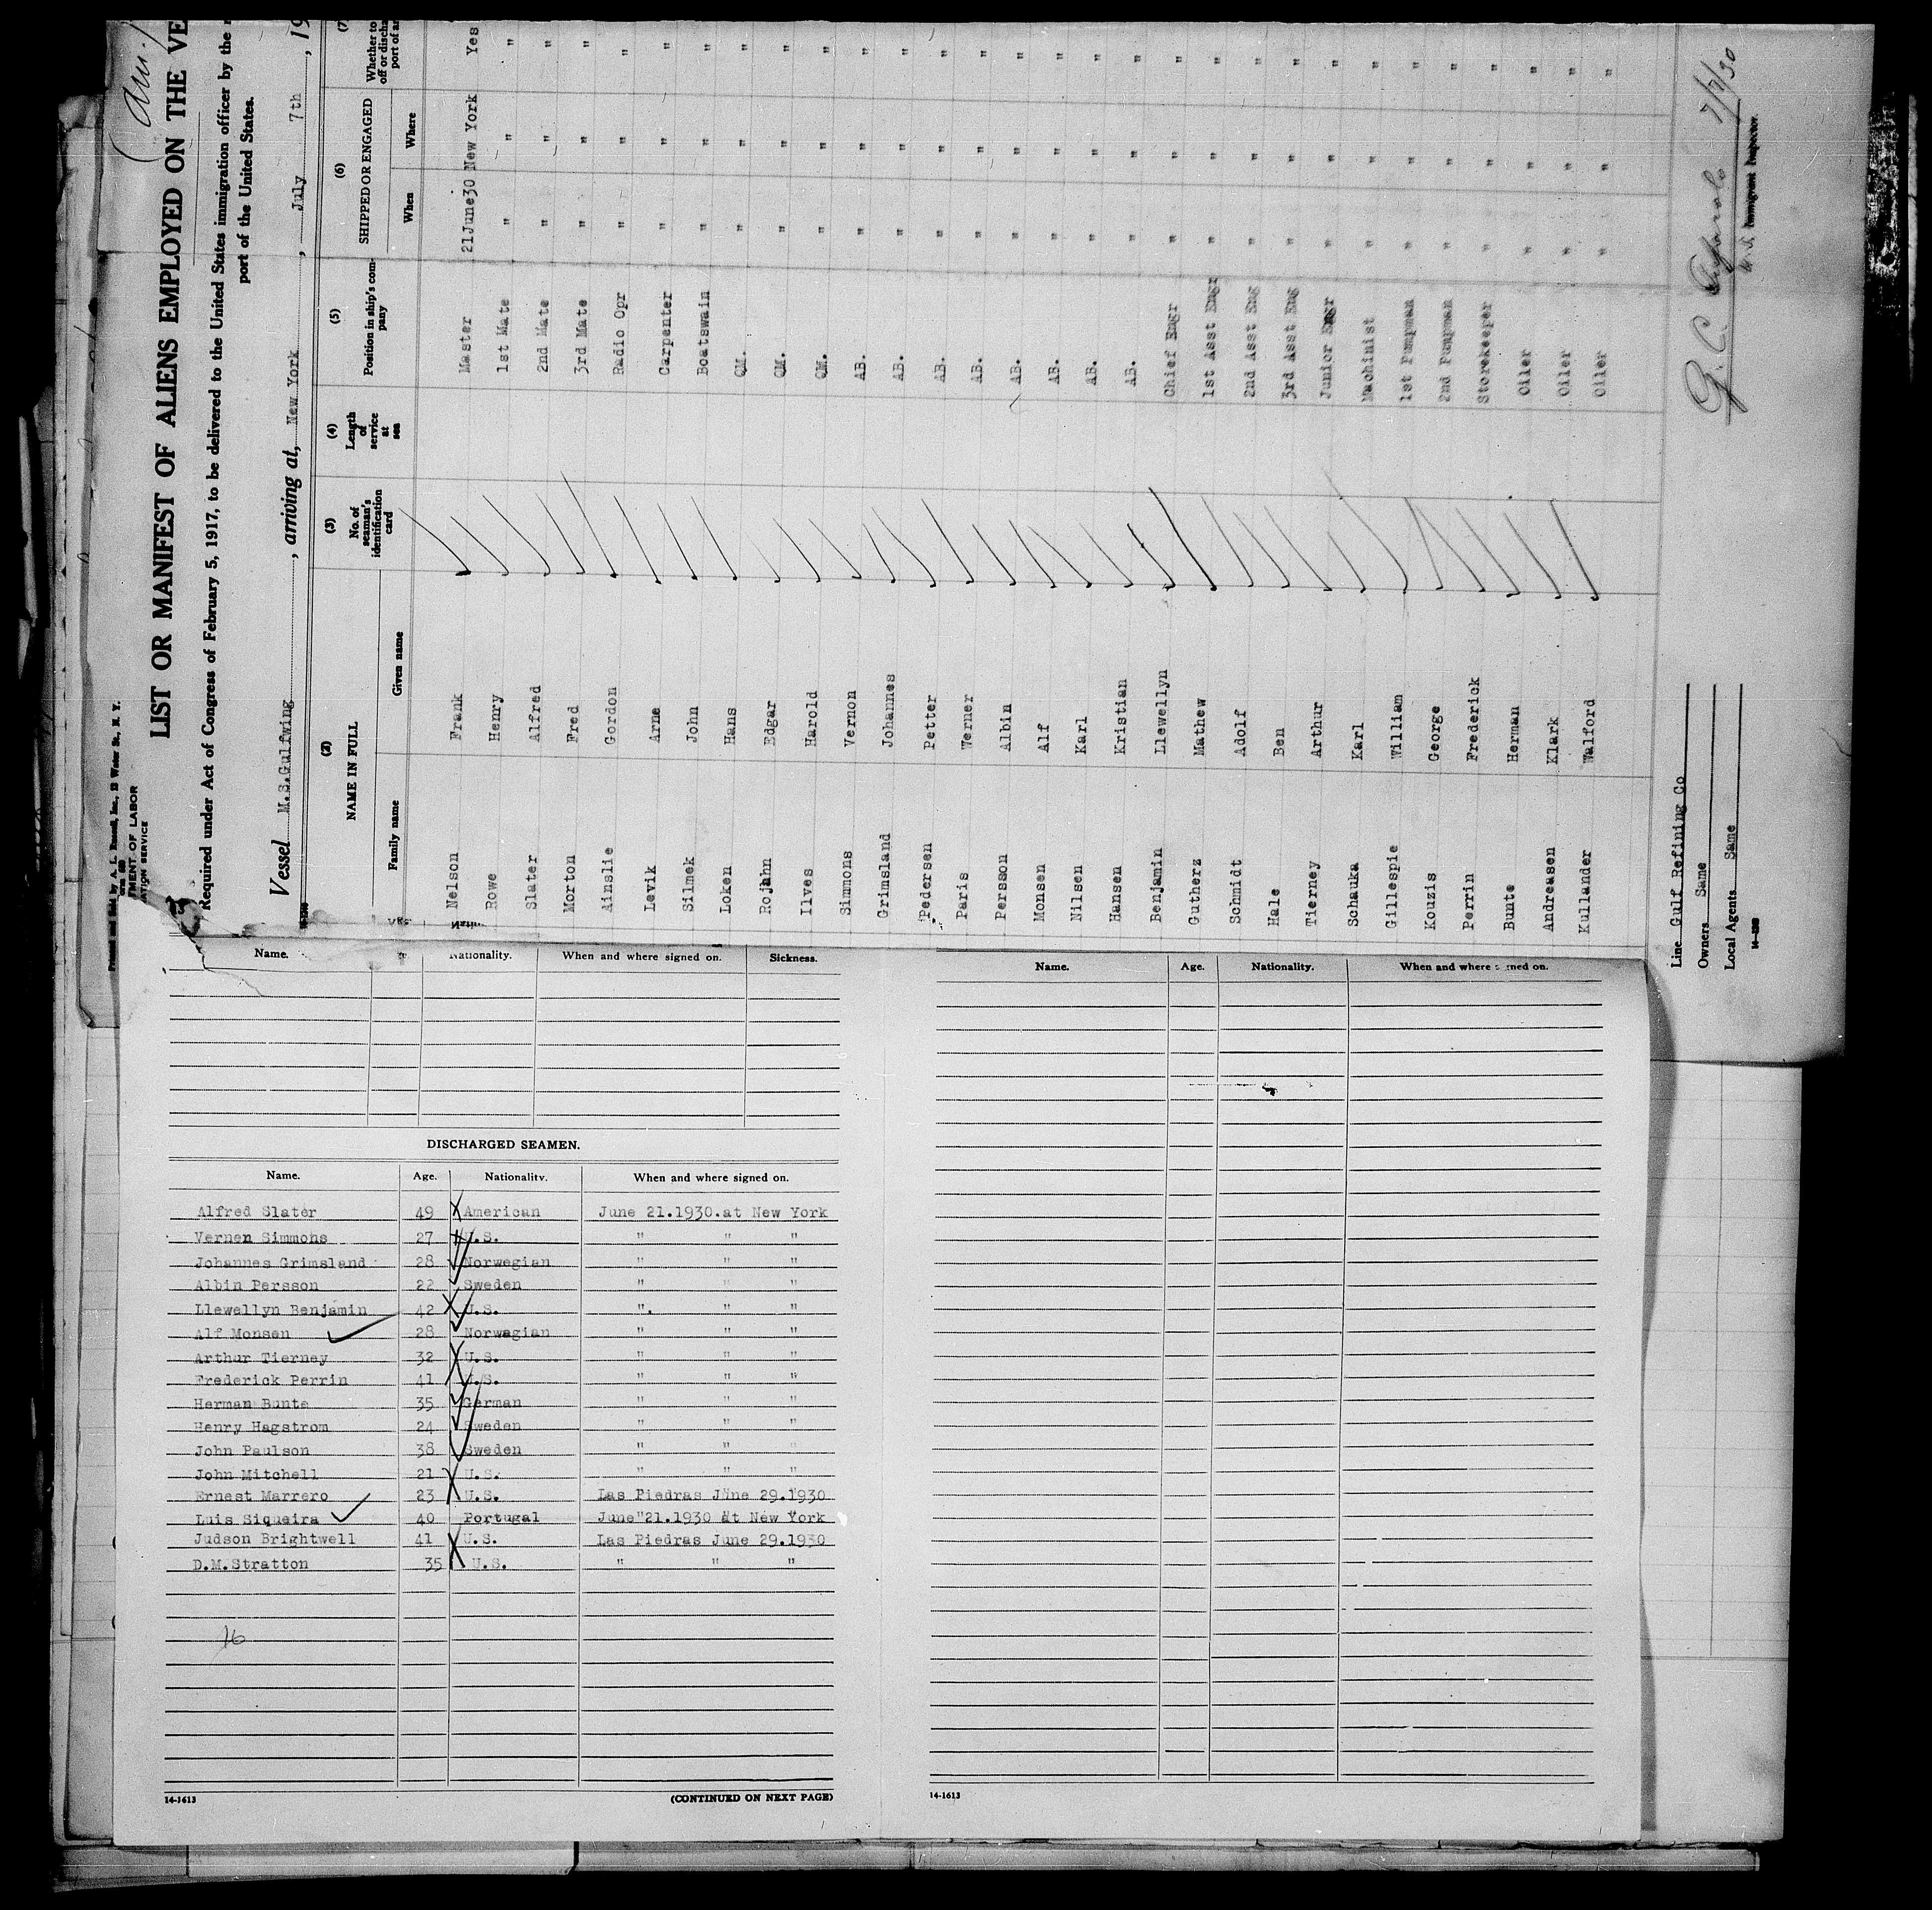 Printed and Sold by A. L. Russell, Inc., 12 Water St., N. Y.
MENT OF LABOR
ATION SERVICE
LIST OR MANIFEST OF ALIENS EMPLOYED ON THE VE
Required under Act of Congress of February 5, 1917, to be delivered to the United States immigration officer by the
port of the United States.
Vessel M.S.Gulfwing, arriving at, New York, July 7th, 19
(2) (3) (4) (5) (6) (7)
NAME IN FULL No. of seaman's identification card Length of service at sea Position in ship's company SHIPPED OR ENGAGED Whether to
Family name Given name When Where off or discha port of
Nelson Frank Master 21June30 New York Yes
Rowe Henry 1st Mate " " "
Slater Alfred 2nd Mate " " "
Morton Fred 3rd Mate " " "
Ainslie Gordon Radio Opr " " "
Levik Arne Carpenter " " "
Silmek John Boatswain " " "
Loken Hans QM. " " "
Rojahn Edgar QM. " " "
Ilves Harold QM. " " "
Simmons Vernon AB. " " "
Grimsland Johannes AB. " " "
Pedersen Petter AB. " " "
Paris Werner AB. " " "
Persson Albin AB. " " "
Monsen Alf AB. " " "
Nilsen Karl AB. " " "
Hansen Kristian AB. " " "
Benjamin Llewellyn Chief Engr " " "
Gutherz Mathew 1st Asst Engr " " "
Schmidt Adolf 2nd Asst Eng " " "
Hale Ben 3rd Asst Eng " " "
Tierney Arthur Junior Engr " " "
Schauka Karl Machinist " " "
Gillespie William 1st Pumpman " " "
Kouzis George 2nd Pumpman " " "
Perrin Frederick Storekeeper " " "
Bunte Herman Oiler " " "
Andreasen Klark Oiler " " "
Kullander Walford Oiler " " "
Line Gulf Refining Co
Owners Same
Local Agents Same
G. C. 7/7/30
Immigrant Inspector.
Name. Nationality. When and where signed on. Sickness.
DISCHARGED SEAMEN.
Name. Age. Nationality. When and where signed on.
Alfred Slater 49 American June 21.1930.at New York
Vernen Simmons 27 U.S. " " "
Johannes Grimsland 28 Norwegian " " "
Albin Persson 22 Sweden " " "
Llewellyn Benjamin 42 U.S. " " "
Alf Monsen 28 Norwegian " " "
Arthur Tierney 32 U.S. " " "
Frederick Perrin 41 U.S. " " "
Herman Bunte 35 German " " "
Henry Hagstrom 24 Sweden " " "
John Paulson 38 Sweden " " "
John Mitchell 21 U.S. " " "
Ernest Marrero 23 U.S. Las Piedras June 29.1930
Luis Siqueira 40 Portugal June 21.1930 at New York
Judson Brightwell 41 U.S. Las Piedras June 29.1930
D.M.Stratton 35 U.S. " " "
16
14-1613 (CONTINUED ON NEXT PAGE)
Name. Age. Nationality. When and where signed on.
14-1613